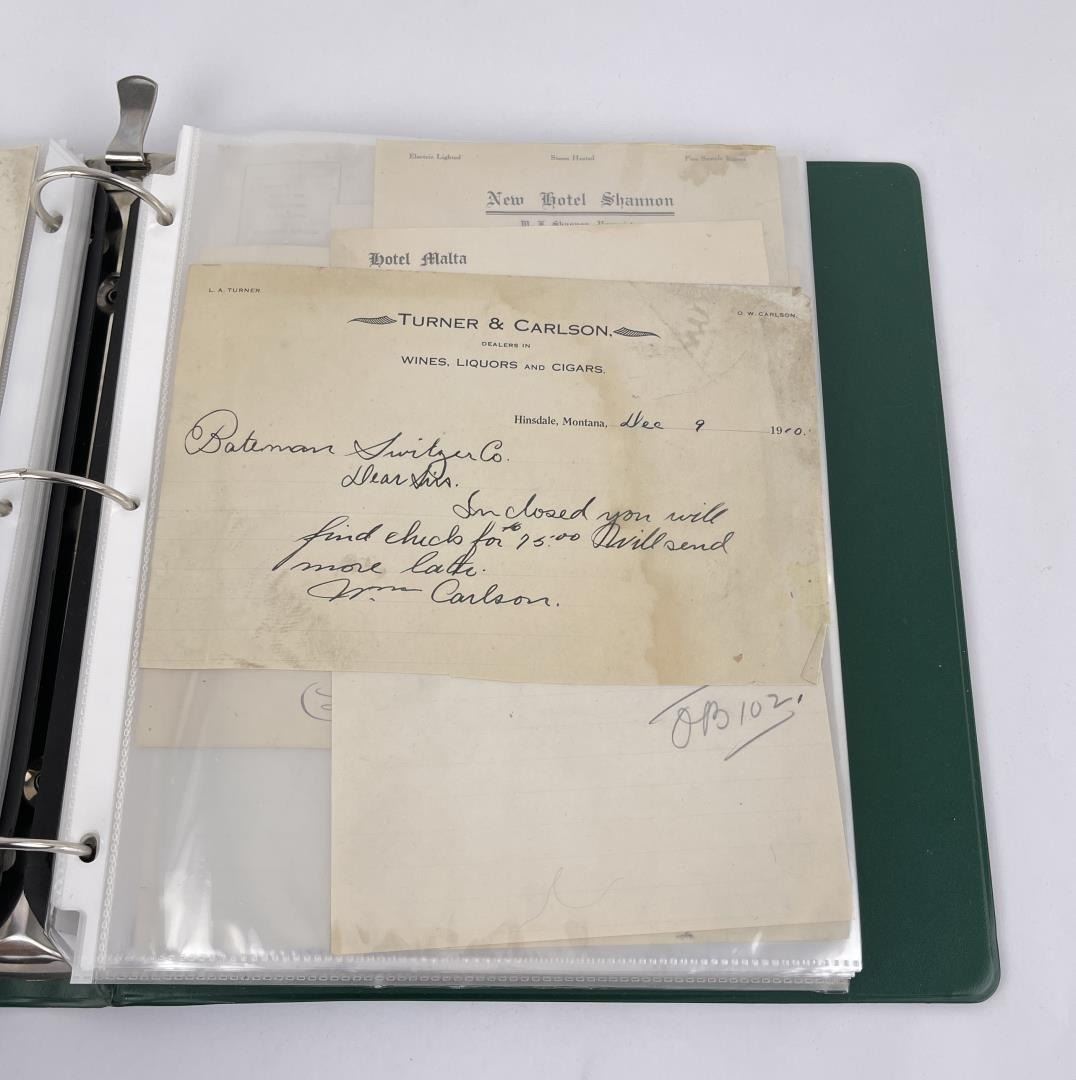 Electric Lighted Steam Heated
New Hotel Shannon
Hotel Malta
L. A. TURNER O. W. CARLSON.
TURNER & CARLSON,
DEALERS IN
WINES, LIQUORS AND CIGARS.
Hinsdale, Montana, Dec 9 1910.
Bateman Switzer Co.
Dear Sirs.
Inclosed you will
find check for $75.00 I will send
more later.
Wm Carlson.
OB 102.